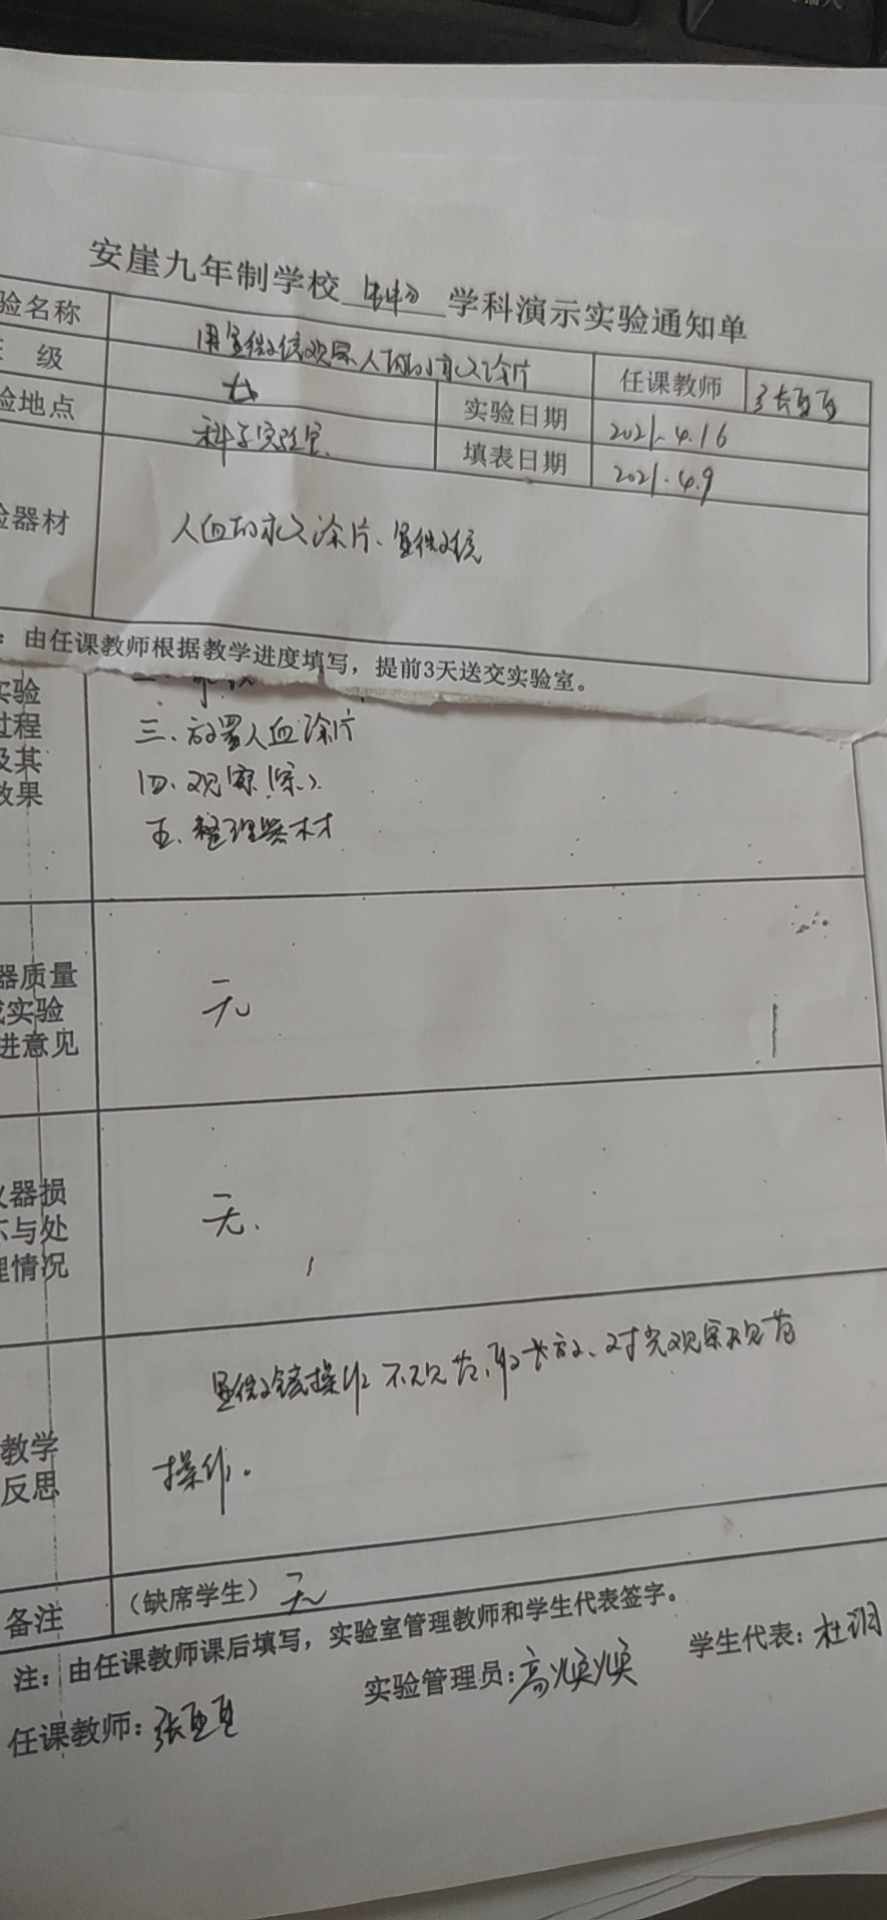 安崖九年制学校 生物 学科演示实验通知单
验名称 用显微镜观察人血的永久涂片 任课教师 张
级 七 实验日期 2021.4.16
验地点 科学实验室 填表日期 2021.4.9
验器材 人血的永久涂片、显微镜
：由任课教师根据教学进度填写，提前3天送交实验室。
实验
过程
及其
效果
三、放置人血涂片
四、观察
五、整理器材
器质量
或实验
进意见
无
仪器损
坏与处
理情况
无.
教学
反思
显微镜操作不规范,
对光观察规范
操作。
备注 （缺席学生） 无
注：由任课教师课后填写，实验室管理教师和学生代表签字。
任课教师：张 实验管理员：高焕焕 学生代表：杜